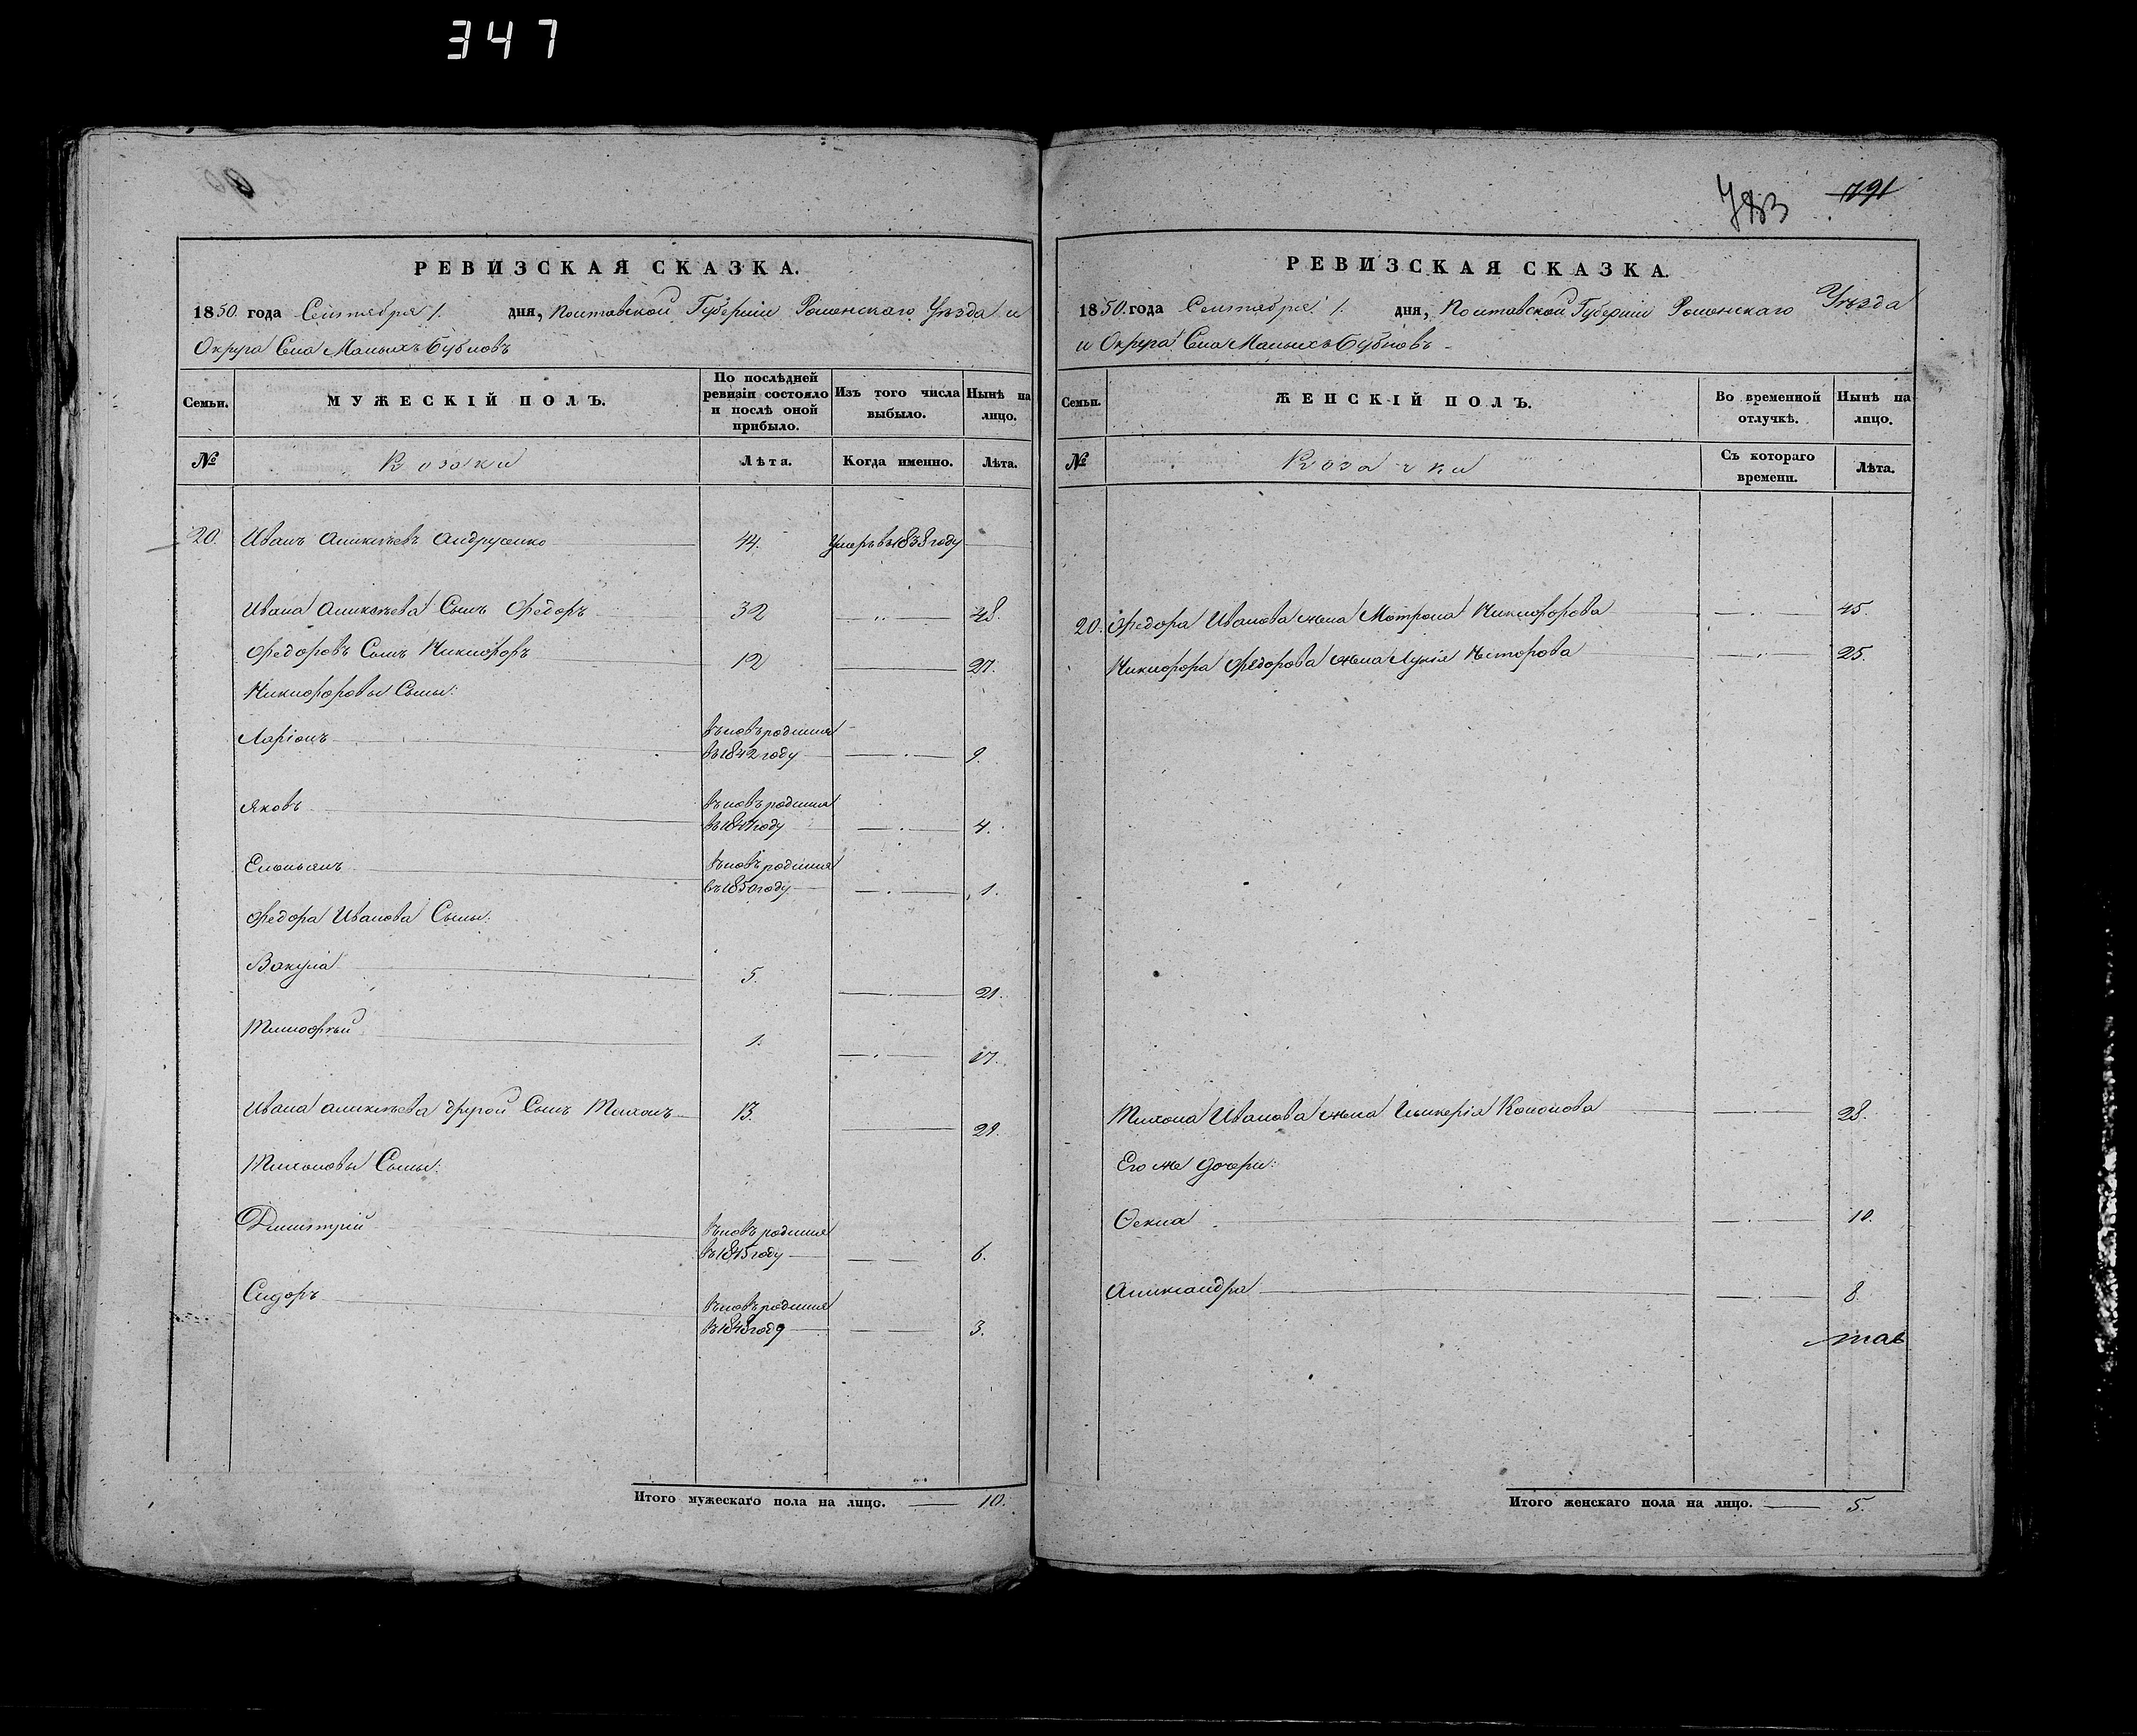 347
РЕВИЗСКАЯ СКАЗКА.
1850 года Сентября 1. дня, Полтавской Губерніи Роменскаго Уѣзда и
Округа Села Малыхъ Бубновъ
Семьи. МУЖЕСКІЙ ПОЛЪ. По послѣдней ревизіи состояло и послѣ оной прибыло. Изъ того числа выбыло. Нынѣ на лицо.
№ Козаки Лѣта. Когда именно. Лѣта.
20. Иванъ Алексѣевъ Андрусенко 44. Умеръ въ 1838 году
Ивана Алексѣева Сынъ Федоръ 32 48.
Федоровъ Сынъ Никифоръ 12 27.
Никифоровы Сыны:
Ларіонъ вновь родился
въ 1842 году 9.
Яковъ вновь родился
въ 1847 году 4.
Емельянъ вновь родился
въ 1850 году 1.
Федора Иванова Сыны:
Вакула 5. 21.
Тимофей 1. 17.
Ивана Алексѣева другой Сынъ Тихонъ 13. 29.
Тихоновы Сыны:
Дмитрій вновь родился
въ 1845 году 6.
Сидоръ вновь родился
въ 1848 году 3.
Итого мужескаго пола на лицо. 10.
783 791
РЕВИЗСКАЯ СКАЗКА.
1850. года Сентября 1. дня, Полтавской Губерніи Роменскаго Уѣзда
и Округа Села Малыхъ Бубновъ
Семьи. ЖЕНСКІЙ ПОЛЪ. Во временной отлучкѣ. Нынѣ на лицо.
№ Козачки Съ котораго времени. Лѣта.
20. Федора Иванова жена Матрона Никифорова 45
Никифора Федорова жена Лукія Нестерова 25.
Тихона Иванова жена Гликерія Кононова 28.
Его же дочери:
Фекла 10.
Александра 8.
Итого женскаго пола на лицо. 5.